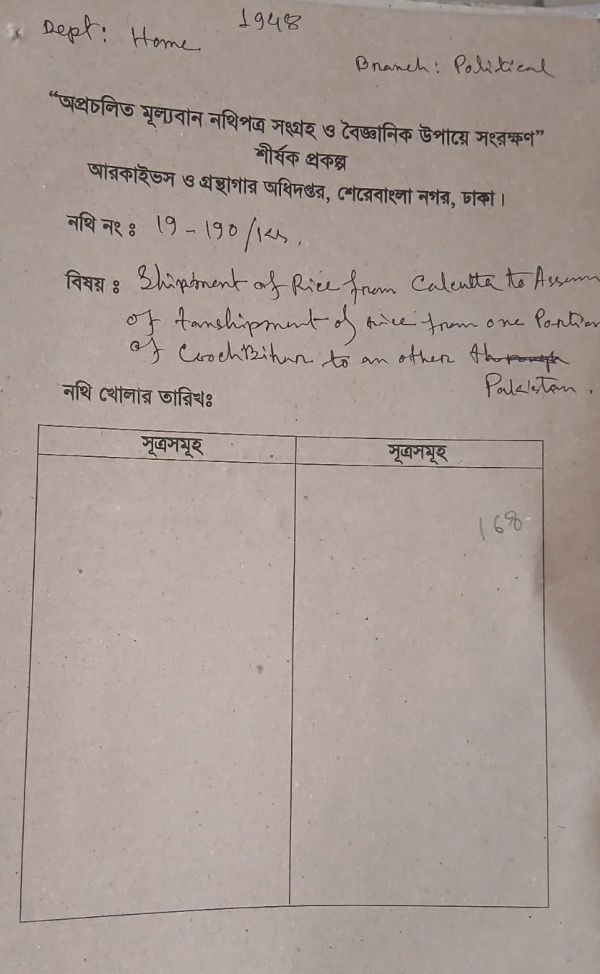 1948
Dept: Home
Branch: Political
“অপ্রচলিত মূল্যবান নথিপত্র সংগ্রহ ও বৈজ্ঞানিক উপায়ে সংরক্ষণ”
শীর্ষক প্রকল্প
আরকাইভস ও গ্রন্থাগার অধিদপ্তর, শেরেবাংলা নগর, ঢাকা।
নথি নং ঃ 19 - 190 /
বিষয় ঃ Shiptment of Rice from Calcutta to Assam
of tanshipment of rice from one Portion
of CoochBihar to an other
Pakistan.
নথি খোলার তারিখঃ
সূত্রসমূহ সূত্রসমূহ
168